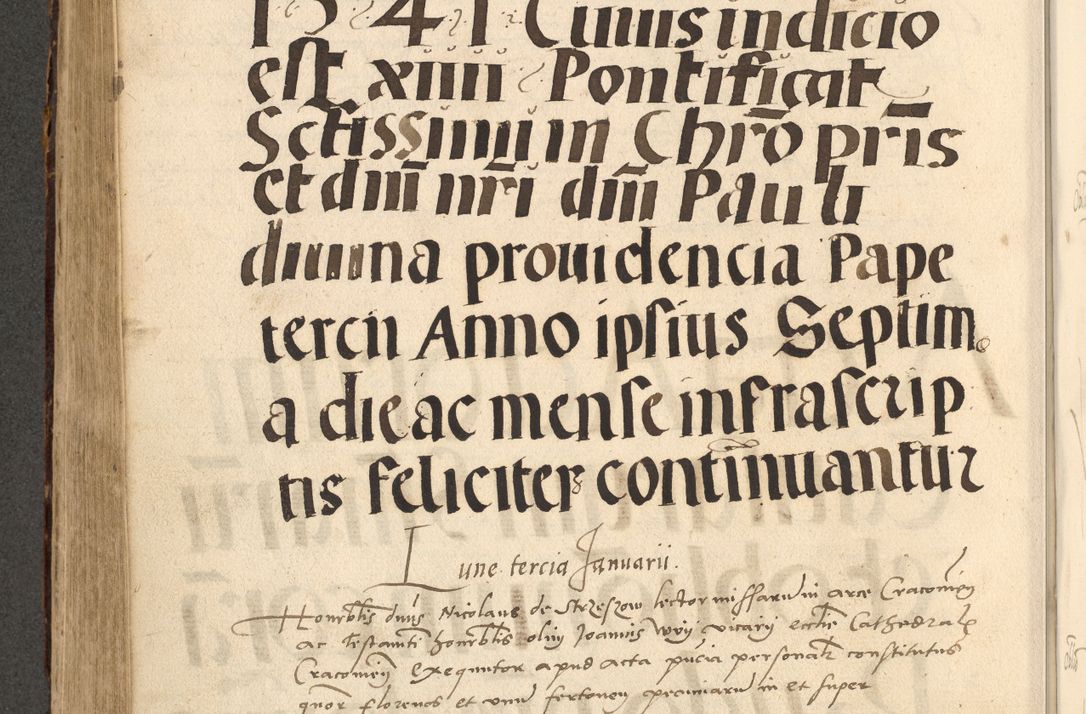 1541 Cuius indicio
est xiiii Pontificat
Sctissimi in Chro pris
et dni nri dni Pauli
diuina prouidencia Pape
tercii Anno ipsius Septim
a die ac mense infrascrip
tis feliciter continuantur
Lune tercia Januarii.
Honorblis dnus Nicolaus de Strzeszow lector missarum in arce Cracovien
ac testamti honorblis olim Joannis Woy vicarii ecclie Cathedralis
Cracovien Exequutor apud acta pncia personalr constitutus
quor florenos et unu fertonem pecuniaru in et super